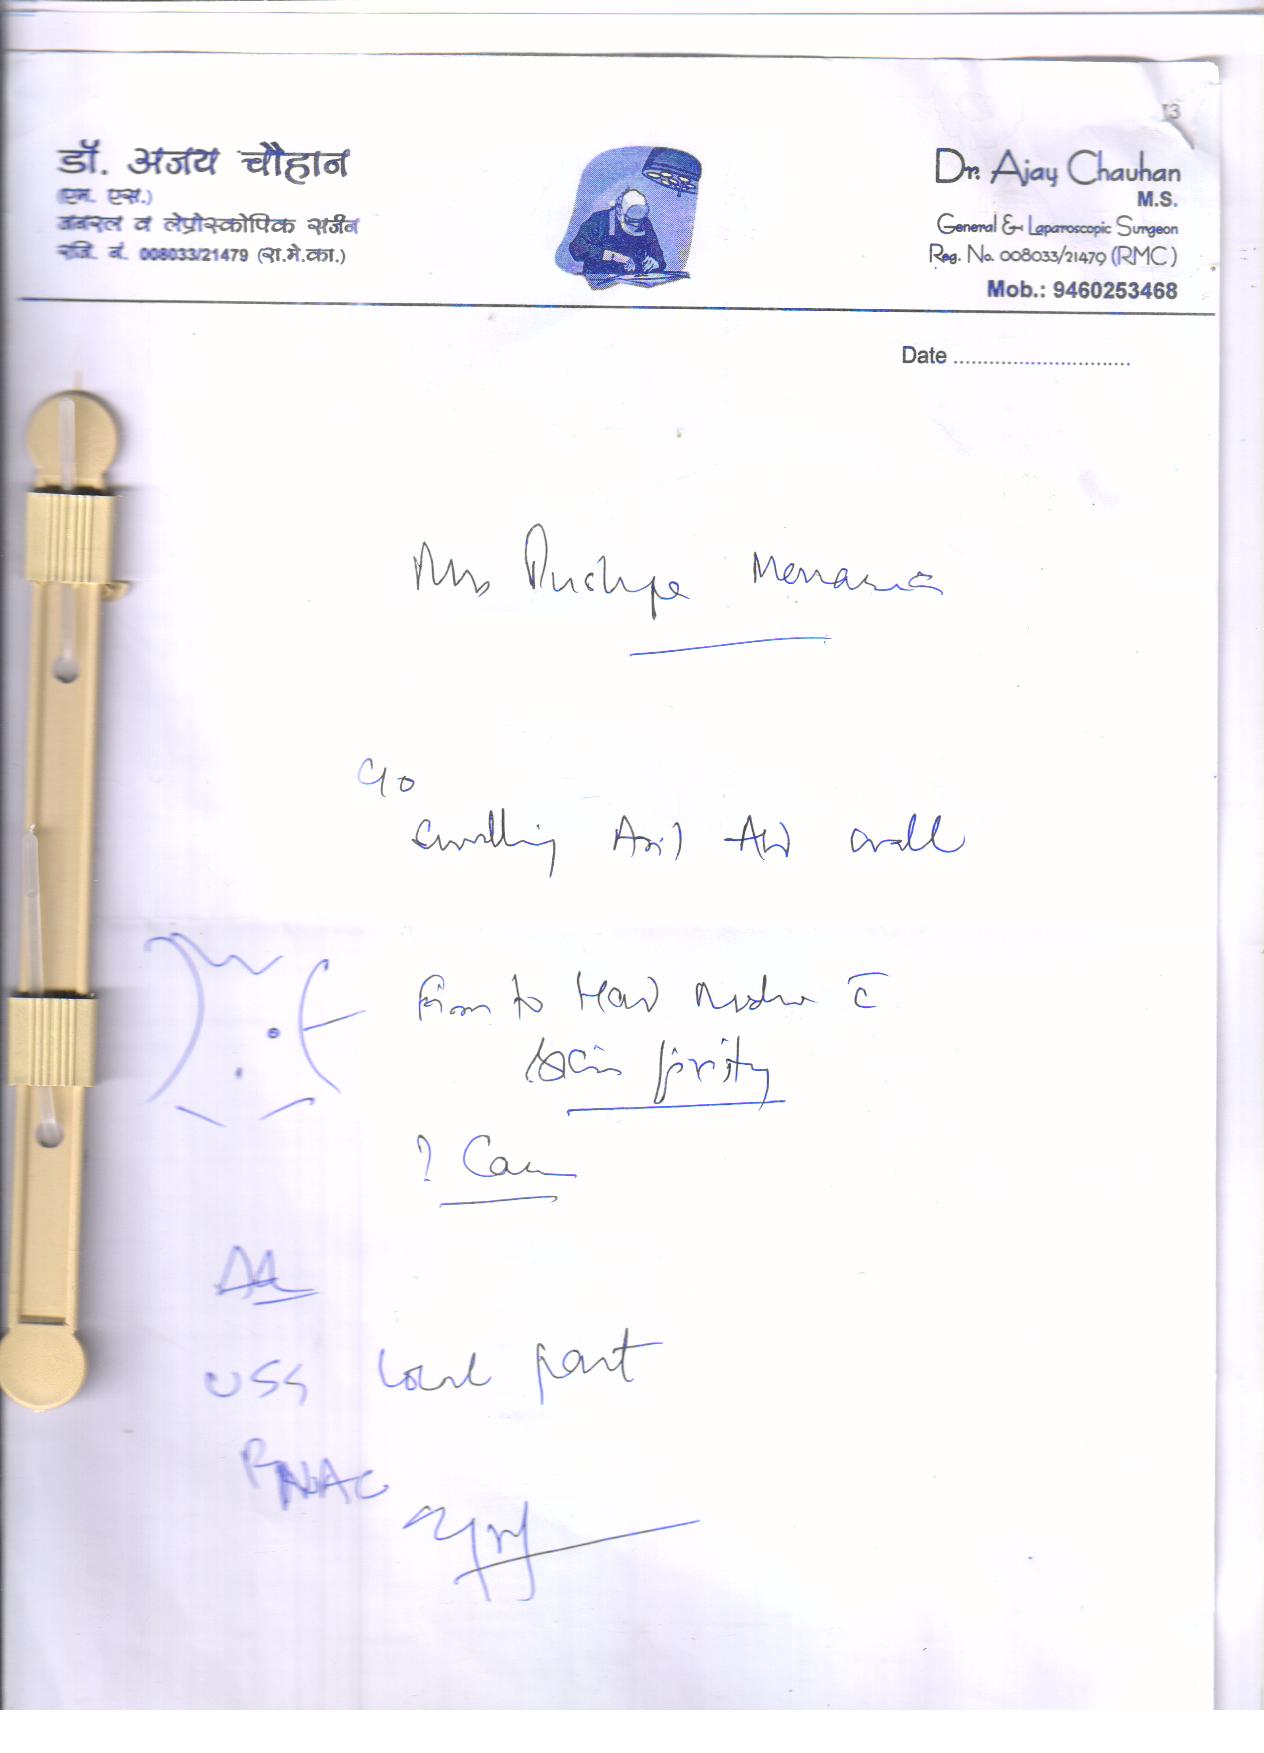 13
डॉ. अजय चौहान
(एम. एस.)
जनरल व लेप्रोस्कोपिक सर्जन
रजि. नं. 008033/21479 (रा.मे.का.)
Dr. Ajay Chauhan
M.S.
General & Laparoscopic Surgeon
Reg. No. 008033/21479 (RMC)
Mob.: 9460253468
Date ..............................
Mrs Pushpa Menaria
C/o
Swelling Ant Abd wall
Firm to Hard Nodular c̄
skin fixity
? Ca
Adv
USG local part
FNAC